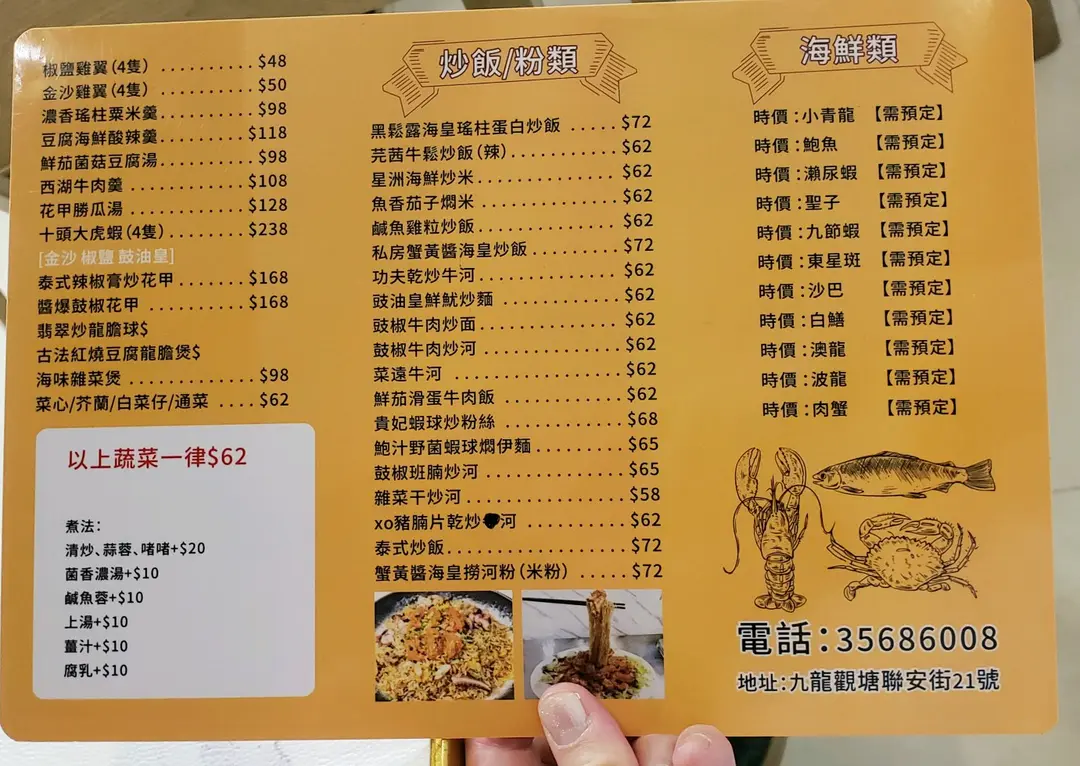 椒鹽雞翼(4隻) .......... $48
金沙雞翼(4隻) .......... $50
濃香瑤柱粟米羹.......... $98
豆腐海鮮酸辣羹.......... $118
鮮茄菌菇豆腐湯.......... $98
西湖牛肉羹 ............ $108
花甲勝瓜湯 ............ $128
十頭大虎蝦(4隻)........ $238
[金沙 椒鹽 鼓油皇]
泰式辣椒膏炒花甲....... $168
醬爆鼓椒花甲 .......... $168
翡翠炒龍膽球$
古法紅燒豆腐龍膽煲$
海味雜菜煲 ............. $98
菜心/芥蘭/白菜仔/通菜 .... $62
以上蔬菜一律$62
煮法:
清炒、蒜蓉、啫啫+$20
菌香濃湯+$10
鹹魚蓉+$10
上湯+$10
薑汁+$10
腐乳+$10
炒飯/粉類
黑鬆露海皇瑤柱蛋白炒飯 ..... $72
芫茜牛鬆炒飯(辣)........... $62
星洲海鮮炒米.............. $62
魚香茄子燜米 ............. $62
鹹魚雞粒炒飯.............. $62
私房蟹黃醬海皇炒飯 ......... $72
功夫乾炒牛河.............. $62
豉油皇鮮魷炒麵 ............ $62
豉椒牛肉炒面.............. $62
鼓椒牛肉炒河 ............. $62
菜遠牛河 ................ $62
鮮茄滑蛋牛肉飯 ............ $62
貴妃蝦球炒粉絲 ............ $68
鮑汁野菌蝦球燜伊麵......... $65
鼓椒班腩炒河 ............. $65
雜菜干炒河................ $58
xo豬腩片乾炒河 .......... $62
泰式炒飯................. $72
蟹黃醬海皇撈河粉(米粉) ..... $72
海鮮類
時價:小青龍 【需預定】
時價:鮑魚 【需預定】
時價:瀨尿蝦 【需預定】
時價:聖子 【需預定】
時價:九節蝦 【需預定】
時價:東星斑 【需預定】
時價:沙巴 【需預定】
時價:白鱔 【需預定】
時價:澳龍 【需預定】
時價:波龍 【需預定】
時價:肉蟹 【需預定】
電話:35686008
地址:九龍觀塘聯安街21號